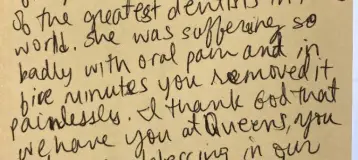 of the greatest dentists in
world. She was suffering so
badly with oral pain and in
five minutes you removed it
painlessly. I thank God that
we have you at Queens, you
blessing in our